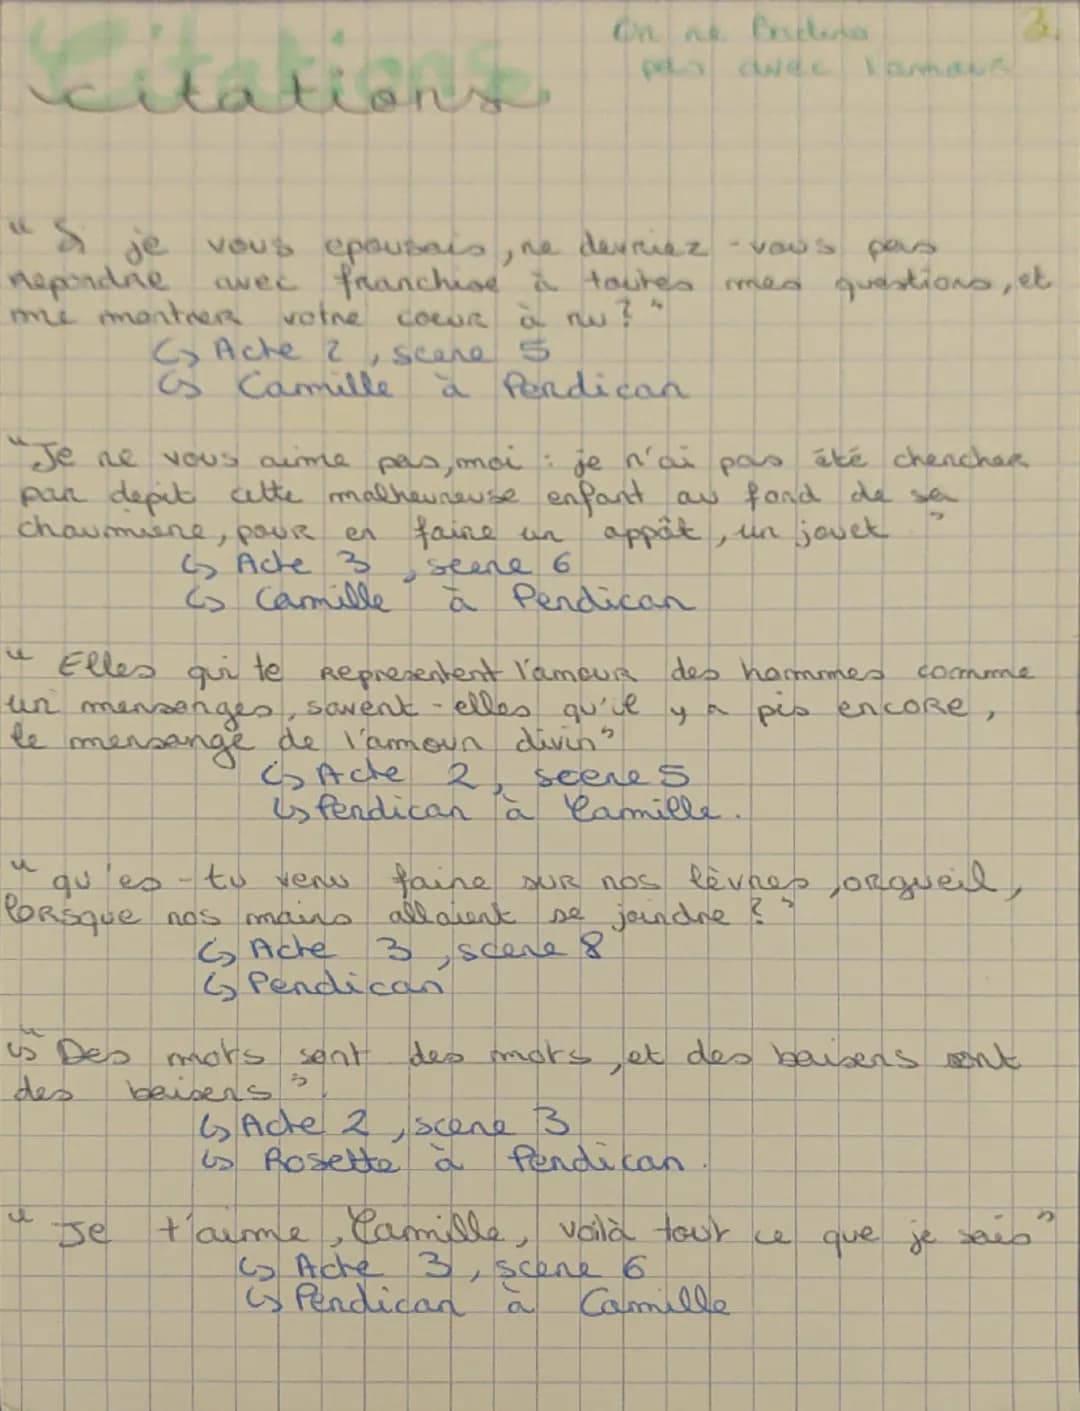 Citations
On ne Badine
pas avec l'amour
3.
"Si je vous epousais, ne devriez-vous pas
repondre avec franchise à toutes mes questions, et
me montrer votre coeur à nu?"
↳ Acte 2, scene 5
↳ Camille à Perdican
"Je ne vous aime pas, moi : je n'ai pas été chercher
par depit cette malheureuse enfant au fond de sa
chaumiere, pour en faire un appât, un jouet"
↳ Acte 3, scene 6
↳ Camille à Perdican
"Elles qui te representent l'amour des hommes comme
un mensonges, savent-elles qu'il y a pis encore,
le mensonge de l'amour divin"
↳ Acte 2, scene 5
↳ Perdican à Camille.
"qu'es-tu venu faire sur nos lèvres, orgueil,
lorsque nos mains allaient se joindre?"
↳ Acte 3, scene 8
↳ Perdican
↳ "Des mots sont des mots, et des baisers sont
des baisers"
↳ Acte 2, scene 3
↳ Rosette à Perdican.
"Je t'aime, Camille, voilà tout ce que je sais"
↳ Acte 3, scene 6
↳ Perdican à Camille